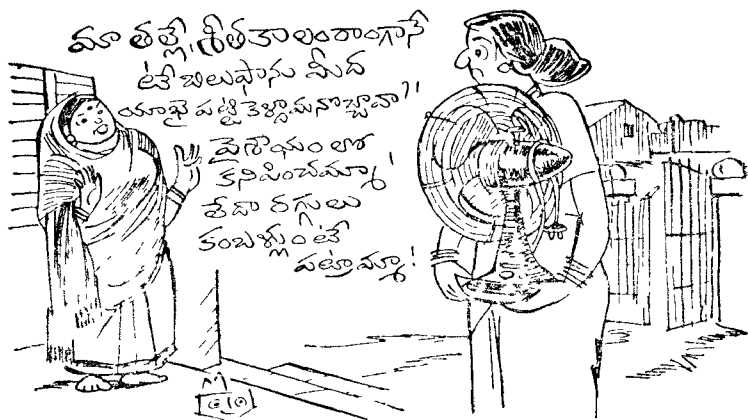 మా తల్లే, శీతకాలంరాంగానే
టేబిలుఫాను మీద
యాభై పట్టుకెళ్దామనొచ్చావా?!
వైశాఖం లో
కనిపించమ్మా!
లేదా రగ్గులు
కంబళ్లుంటే
పట్రామ్మా!